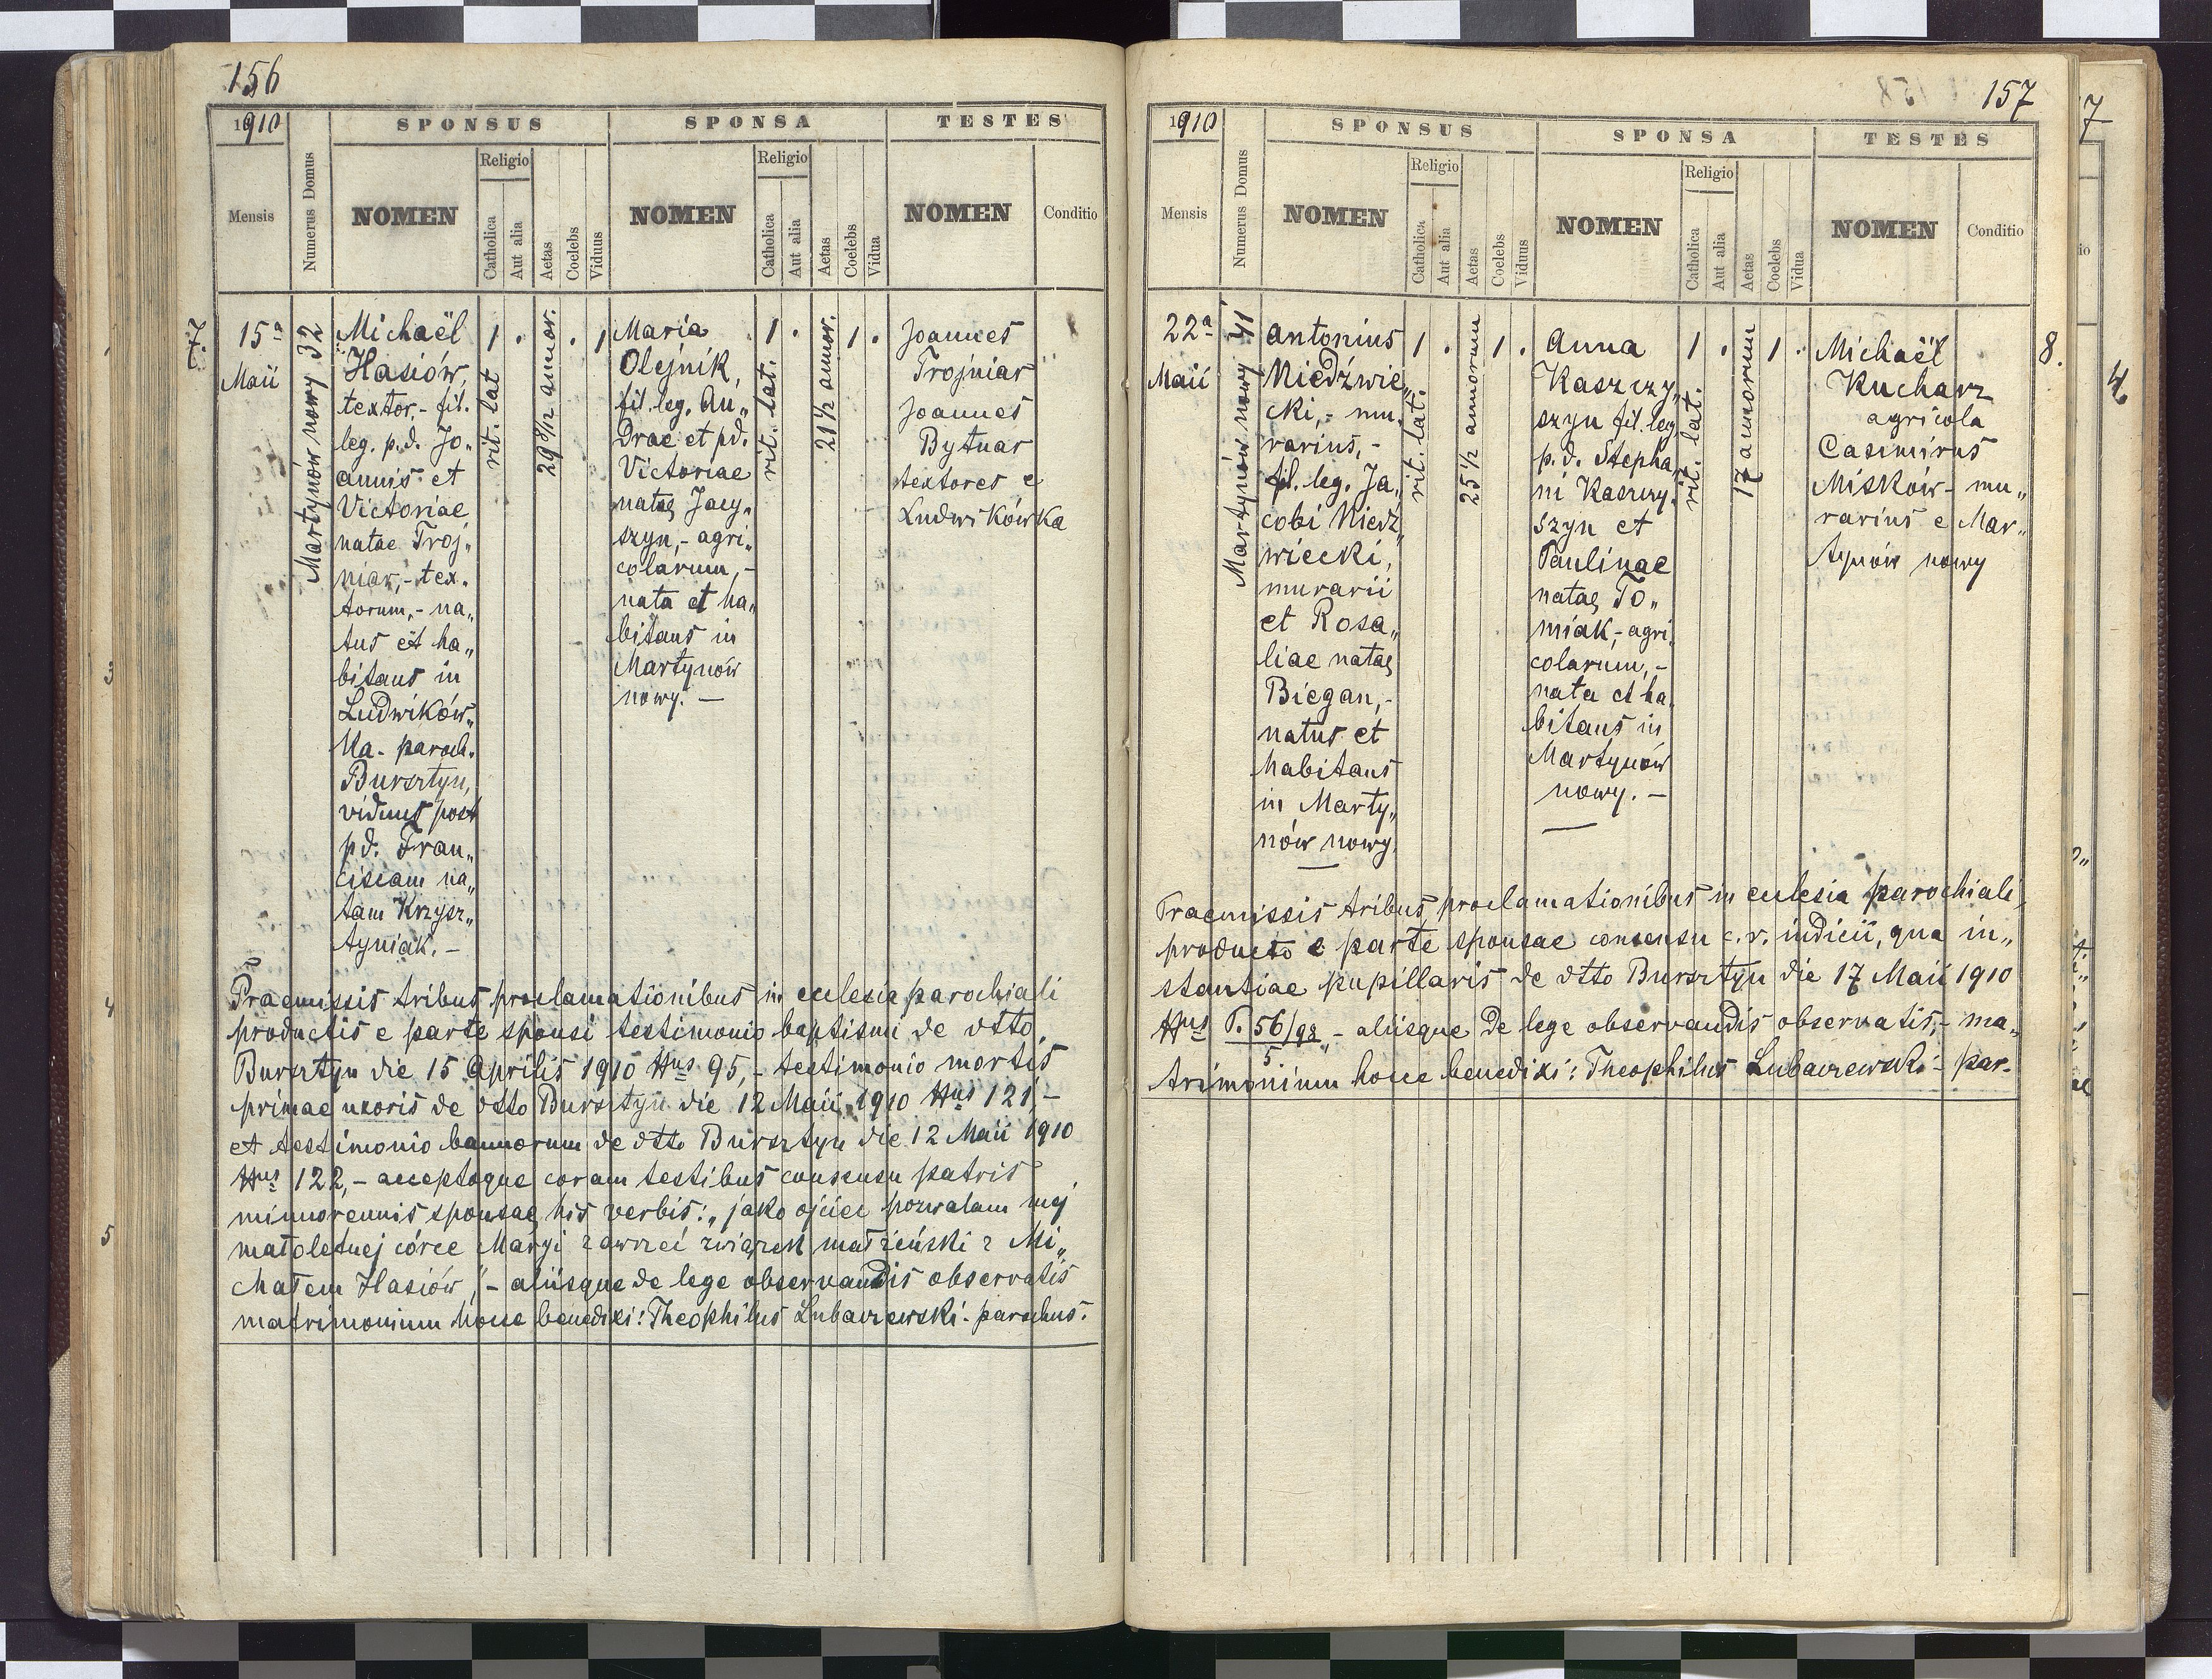 156
1910
SPONSUS
SPONSA
TESTES
Mensis
Numerus Domus
NOMEN
Religio
Catholica
Aut alia
Aetas
Coelebs
Viduus
NOMEN
Religio
Catholica
Aut alia
Aetas
Coelebs
Vidua
NOMEN
Conditio
7.
15ª
Maii
Martynów nowy 32
Michaël
Hasiów,
textor,- fil.
leg. p.d. Jo„
annis et
Victoriae
natae Troj„
niar,- tex„
torum,- na„
tus et ha„
bitans in
Ludwików„
ka- paroch.
Bursztyn,
viduus post
pd. Fran„
ciscam na„
tam Krzysz„
tyniak.-
1
.
rit. lat
29 8/12 annor.
.
1
Maria
Olejnik,
fil. leg. An„
drae et pd.
Victoriae
natae Jacy„
szyn,- agri„
colarum,-
nata et ha„
bitans in
Martynów
nowy.-
1
.
rit. lat.
21 1/2 annor.
1
.
Joannes
Trojniar
Joannes
Bytnar
textores e
Ludwikówka
Praemissis tribus proclamationibus in ecclesia parochiali
productis e parte sponsi testimonio baptismi de dtto
Bursztyn die 15 Aprilis 1910 Nus 95,- testimonio mortis
primae uxoris de dtto Bursztyn die 12 Maii 1910 Nus 121,-
et testimonio bannorum de dtto Bursztyn die 12 Maii 1910
Nus 122,- acceptoque coram testibus consensu patris
minorennis sponsae his verbis: „jako ojciec pozwalam mej
małoletniej córce Maryi zawrzeć związek małżeński z Mi„
chałem Hasiów",- aliisque de lege observandis observatis
matrimonium hocce benedixi: Theophilus Lubaczewski- parochus.
157
1910
SPONSUS
SPONSA
TESTES
Mensis
Numerus Domus
NOMEN
Religio
Catholica
Aut alia
Aetas
Coelebs
Viduus
NOMEN
Religio
Catholica
Aut alia
Aetas
Coelebs
Vidua
NOMEN
Conditio
22ª
Maii
Martynów nowy 41
Antonius
Niedźwie„
cki,- mu„
rarius,-
fil. leg. Ja„
cobi Niedź„
wiecki,
murarii
et Rosa„
liae natae
Biegan,-
natus et
habitans
in Marty„
nów nowy.
1
.
rit. lat.
25 1/2 annorum
1
.
Anna
Kaszczy„
szyn fil. leg.
p.d. Stepha„
ni Kaszczy„
szyn et
Paulinae
natae To„
miak,- agri„
colarum,-
nata et ha„
bitans in
Martynów
nowy.-
1
.
rit. lat.
17 annorum
1
.
Michaël
Kucharz
agricola
Casimirus
Misków- mu„
rarius e Mar„
tynów nowy
8.
Praemissis tribus proclamationibus in ecclesia parochiali,
producto e parte sponsae consensu c.r. iudicii, qua in„
stantiae pupillaris de dtto Bursztyn die 17 Maii 1910
Nus P. 56/98,- aliisque de lege observandis observatis,- ma„
5
trimonium hocce benedixi: Theophilus Lubaczewski- par.
3
4
5
7
4.